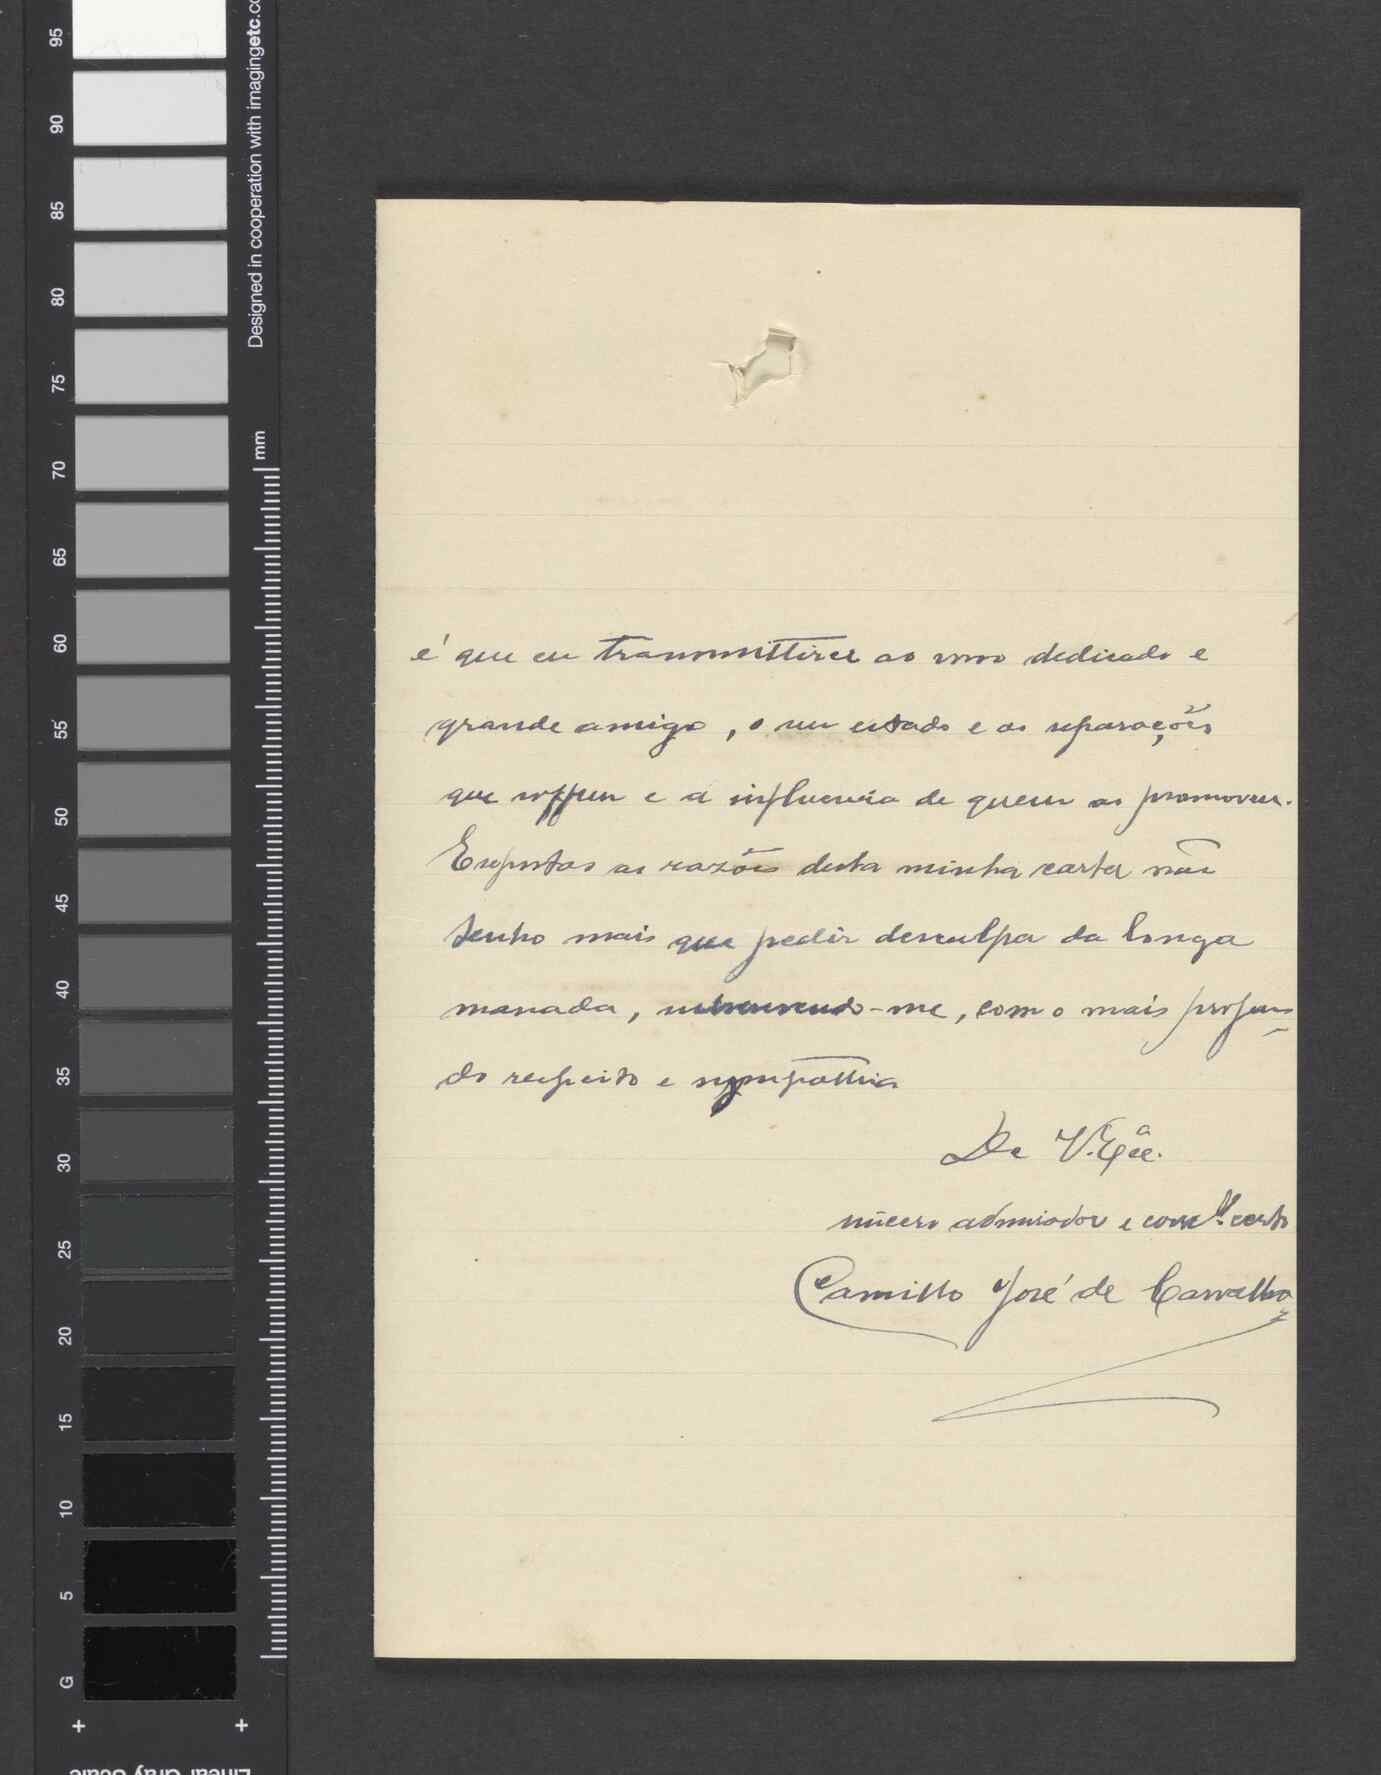 95
90
85
80
75
70
65
60
55
50
45
40
35
30
25
20
15
10
5
G
Designed in cooperation with imagingetc.co
mm
é que eu transmittirei ao vosso dedicado e
grande amigo, o seu estado e as reparações
que soffreu e a influencia de quem as promoveu.
Expostas as razões desta minha carta não
tenho mais que pedir desculpa da longa
massada, subscrevendo-me, com o mais profun-
do respeito e sympathia
De V. Exª.
sincero admirador e certo
Camillo José de Carvalho